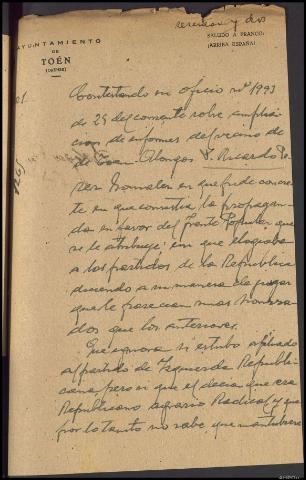 sesenta y dos
SALUDO A FRANCO:
¡ARRIBA ESPAÑA!
AYUNTAMIENTO
DE
TOÉN
(ORENSE)
Contestando su oficio nº 1993
de 29 del corriente sobre amplia
cion de informes del vecino de
de Toen. Alongos D. Ricardo Pe
rez Gonzalez en que pide concre
te en que consistia la propagan
da en favor del Frente Popular que
se le atribuye; en que elogiaba
a los partidos de la Republica
diciendo a su manera de juzgar
que le parecian mas honra
dos que los anteriores.
Que ignora si estubo afiliado
al partido de Izquierda Republi
cana, pero si que el decia que era
Republicano agrario Radical, y que
por lo tanto no sabe, que mantubiera